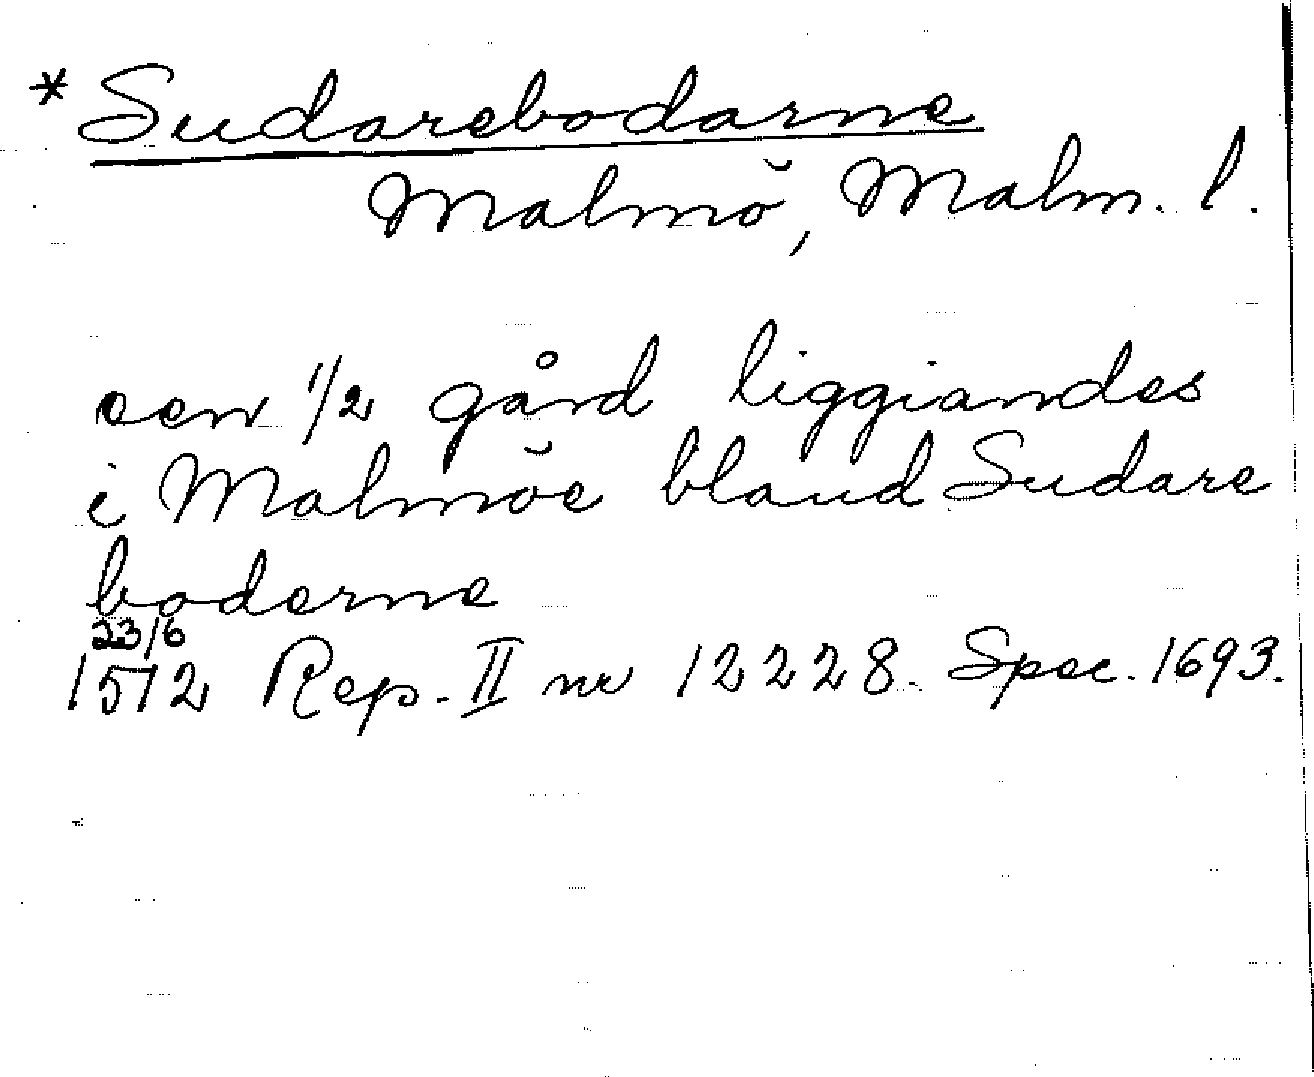 * Sudarebodarne
Malmö, Malm. l.
een 1/2 gård liggiandes
i Malmöe bland Sudare
boderne
23/6
1572 Rep. II nr 12228. Spec. 1693.